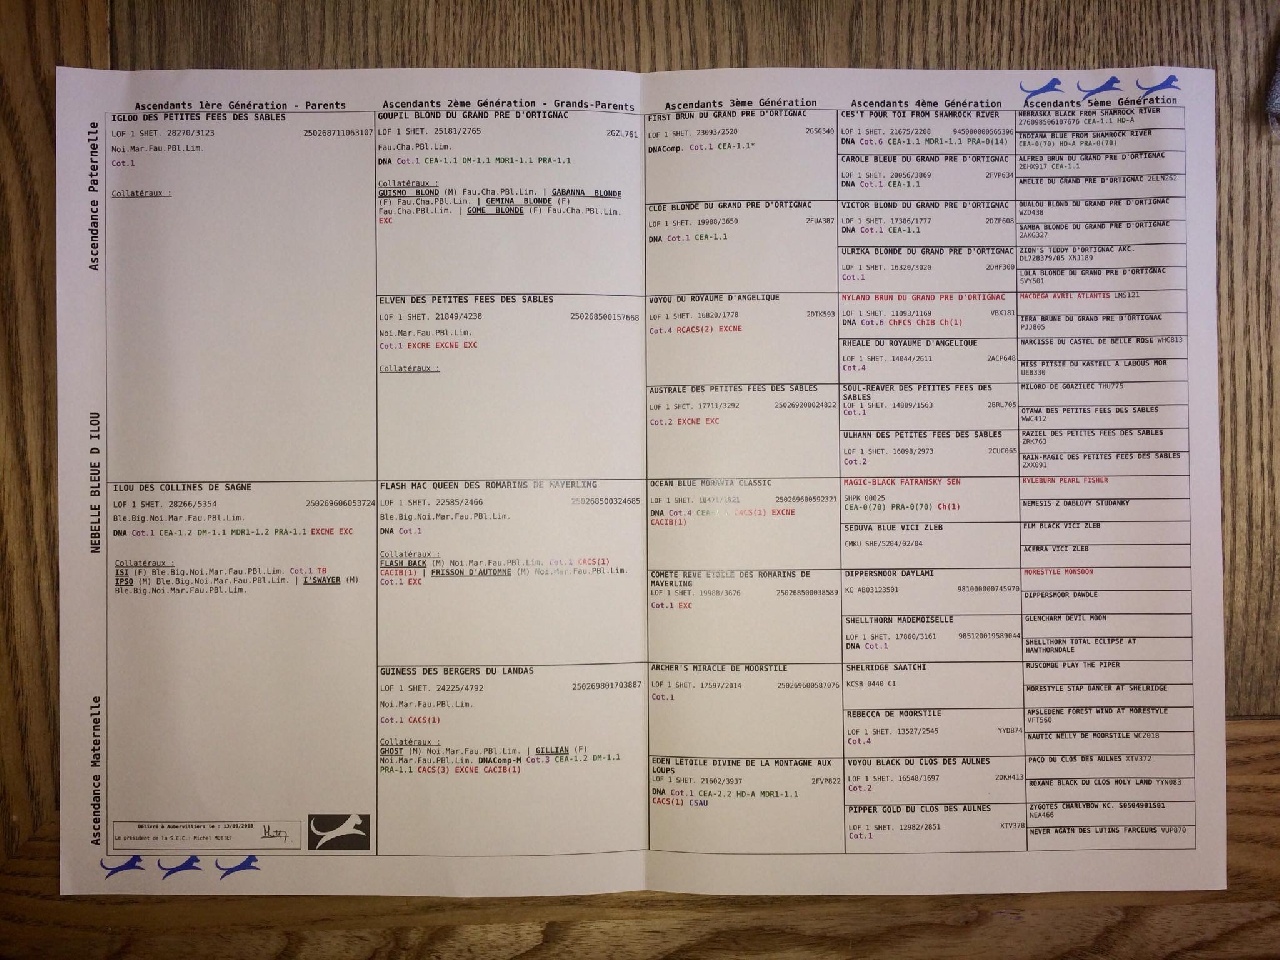 Ascendants 1ère Génération - Parents
Ascendants 2ème Génération - Grands-Parents
Ascendants 3ème Génération
Ascendants 4ème Génération
Ascendants 5ème Génération
Ascendance Paternelle
NEBELLE BLEUE D ILOU
Ascendance Maternelle
IGLOO DES PETITES FEES DES SABLES
LOF 1 SHET. 28270/3123
Noi.Mar.Fau.PBl.Lim.
Cot.1
Collatéraux :
ILOU DES COLLINES DE SAGNE
LOF 1 SHET. 28266/5354 250269606053724
Ble.Big.Noi.Mar.Fau.PBl.Lim.
DNA Cot.1 CEA-1.2 DM-1.1 MDR1-1.2 PRA-1.1 EXCNE EXC
Collatéraux :
ISI (F) Ble.Big.Noi.Mar.Fau.PBl.Lim. Cot.1 TB
IPSO (M) Ble.Big.Noi.Mar.Fau.PBl.Lim. | I'SWAYER (M)
Ble.Big.Noi.Mar.Fau.PBl.Lim.
Délivré à Aubervilliers le :
Le président de la S.C.C.: Michel
GOUPIL BLOND DU GRAND PRE D'ORTIGNAC
LOF 1 SHET. 25181/2765 2GZL781
Fau.Cha.PBl.Lim.
DNA Cot.1 CEA-1.1 DM-1.1 MDR1-1.1 PRA-1.1
Collatéraux :
GUISMO BLOND (M) Fau.Cha.PBl.Lim. | GABANNA BLONDE
(F) Fau.Cha.PBl.Lim. | GEMINA BLONDE (F)
Fau.Cha.PBl.Lim. | GOME BLONDE (F) Fau.Cha.PBl.Lim.
EXC
ELVEN DES PETITES FEES DES SABLES
LOF 1 SHET. 21849/4238 250268500157668
Noi.Mar.Fau.PBl.Lim.
Cot.1 EXCRE EXCNE EXC
Collatéraux :
FLASH MAC QUEEN DES ROMARINS DE MAYERLING
LOF 1 SHET. 22585/2466 250268500324685
Ble.Big.Noi.Mar.Fau.PBl.Lim.
DNA Cot.1
Collatéraux :
FLASH BACK (M) Noi.Mar.Fau.PBl.Lim. Cot.1 CACS(1)
CACIB(1) | FRISSON D'AUTOMNE (M) Noi.Mar.Fau.PBl.Lim.
Cot.1 EXC
GUINESS DES BERGERS DU LANDAS
LOF 1 SHET. 24225/4792 250269801703887
Noi.Mar.Fau.PBl.Lim.
Cot.1 CACS(1)
Collatéraux :
GHOST (M) Noi.Mar.Fau.PBl.Lim. | GILLIAN (F)
Noi.Mar.Fau.PBl.Lim. DNAComp-M Cot.3 CEA-1.2 DM-1.1
PRA-1.1 CACS(3) EXCNE CACIB(1)
FIRST BRUN DU GRAND PRE D'ORTIGNAC
LOF 1 SHET. 23093/2520
DNAComp. Cot.1 CEA-1.1*
CLOE BLONDE DU GRAND PRE D'ORTIGNAC
LOF 1 SHET. 19980/3650 2EUA387
DNA Cot.1 CEA-1.1
VOYOU DU ROYAUME D'ANGELIQUE
LOF 1 SHET. 16820/1778 2DTK593
Cot.4 RCACS(2) EXCNE
AUSTRALE DES PETITES FEES DES SABLES
LOF 1 SHET. 17711/3292 250269200024822
Cot.2 EXCNE EXC
OCEAN BLUE MORAVIA CLASSIC
LOF 1 SHET. 250269600592321
DNA Cot.4 CACS(1) EXCNE
CACIB(1)
COMETE REVE ETOILE DES ROMARINS DE
MAYERLING
LOF 1 SHET. 19988/3676 250268500038589
Cot.1 EXC
ARCHER'S MIRACLE DE MOORSTILE
LOF 1 SHET. 17597/2014 250269600587076
Cot.1
EDEN LETOILE DIVINE DE LA MONTAGNE AUX
LOUPS
LOF 1 SHET. 21602/3937 2FVP822
DNA Cot.1 CEA-2.2 HD-A MDR1-1.1
CACS(1) CSAU
CES'T POUR TOI FROM SHAMROCK RIVER
LOF 1 SHET. 21675/2208
DNA Cot.6 CEA-1.1 MDR1-1.1 PRA-0(14)
CAROLE BLEUE DU GRAND PRE D'ORTIGNAC
LOF 1 SHET. 20056/3869 2FVP634
DNA Cot.1 CEA-1.1
VICTOR BLOND DU GRAND PRE D'ORTIGNAC
LOF 1 SHET. 17306/1777 2DZF608
DNA Cot.1 CEA-1.1
ULRIKA BLONDE DU GRAND PRE D'ORTIGNAC
LOF 1 SHET. 16320/3020
Cot.1
NYLAND BRUN DU GRAND PRE D'ORTIGNAC
LOF 1 SHET. 11093/1169 VBX181
DNA Cot.6 ChFCS ChIB Ch(1)
RHEALE DU ROYAUME D'ANGELIQUE
LOF 1 SHET. 14044/2611 2ACP648
Cot.4
SOUL-REAVER DES PETITES FEES DES
SABLES
LOF 1 SHET. 14809/1563 2BRL705
Cot.1
ULHANN DES PETITES FEES DES SABLES
LOF 1 SHET. 16098/2973 2CUC065
Cot.2
MAGIC-BLACK FATRANSKY SEN
SHPK 00025
CEA-0(70) PRA-0(70) Ch(1)
SEDUVA BLUE VICI ZLEB
CMKU SHE/5204/02/04
DIPPERSMOOR DAYLAMI
KC AB03123501 981000000745970
SHELLTHORN MADEMOISELLE
LOF 1 SHET. 17000/3161 985120019580044
DNA Cot.1
SHELRIDGE SAATCHI
KCSB 0440 CI
REBECCA DE MOORSTILE
LOF 1 SHET. 13527/2545 YYD874
Cot.4
VOYOU BLACK DU CLOS DES AULNES
LOF 1 SHET. 16548/1697 2DKH413
Cot.2
PIPPER GOLD DU CLOS DES AULNES
LOF 1 SHET. 12982/2851 XTV378
Cot.1
NEBRASKA BLACK FROM SHAMROCK RIVER
276098506107676 CEA-1.1 HD-A
INDIANA BLUE FROM SHAMROCK RIVER
CEA-0(70) HD-A PRA-0(70)
ALFRED BRUN DU GRAND PRE D'ORTIGNAC
2EHX917 CEA-1.1
AMELIE DU GRAND PRE D'ORTIGNAC
OUALOU BLOND DU GRAND PRE D'ORTIGNAC
WZD438
SAMBA BLONDE DU GRAND PRE D'ORTIGNAC
2AKG327
ZION'S TEDDY D'ORTIGNAC AKC.
DL728379/05 XNJ189
LOLA BLONDE DU GRAND PRE D'ORTIGNAC
SVY501
MACDEGA AVRIL ATLANTIS LMS121
IERA BRUNE DU GRAND PRE D'ORTIGNAC
PJJ805
NARCISSE DU CASTEL DE BELLE ROSE WHC813
MISS PITSIE DU KASTELL A LABOUS MOR
UEB330
MILORD DE GOAZILEC THU775
OTAWA DES PETITES FEES DES SABLES
WWC412
RAZIEL DES PETITES FEES DES SABLES
ZRK763
RAIN-MAGIC DES PETITES FEES DES SABLES
ZXX091
KYLEBURN PEARL FISHER
NEMESIS Z DABLOVY STUDANKY
ELM BLACK VICI ZLEB
ACERRA VICI ZLEB
MORESTYLE MONSOON
DIPPERSMOOR DAWDLE
GLENCHARM DEVIL MOON
SHELLTHORN TOTAL ECLIPSE AT
HAWTHORNDALE
RUSCOMBE PLAY THE PIPER
MORESTYLE STAP DANCER AT SHELRIDGE
APSLEDENE FOREST WIND AT MORESTYLE
VFT560
NAUTIC NELLY DE MOORSTILE WCZ018
PACO DU CLOS DES AULNES XTV372
ROXANE BLACK DU CLOS HOLY LAND YYN083
ZYGOTES CHARLYBOW KC. S0504901S01
NEA466
NEVER AGAIN DES LUTINS FARCEURS VUP870